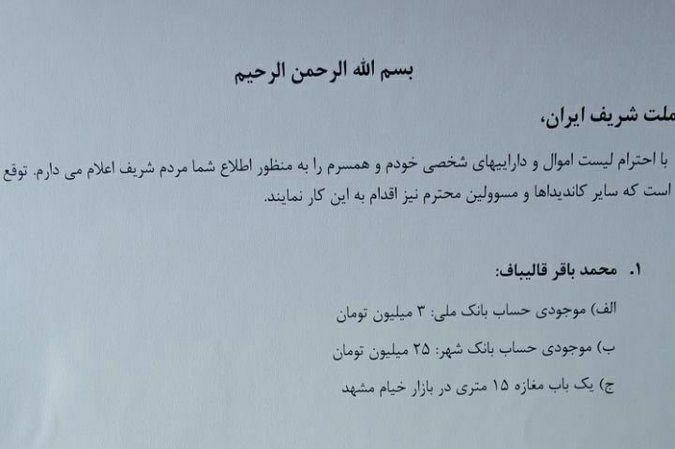 بسم الله الرحمن الرحیم
ملت شریف ایران،
با احترام لیست اموال و داراییهای شخصی خودم و همسرم را به منظور اطلاع شما مردم شریف اعلام می دارم. توقع
است که سایر کاندیداها و مسوولین محترم نیز اقدام به این کار نمایند.
۱. محمد باقر قالیباف:
الف) موجودی حساب بانک ملی: ۳ میلیون تومان
ب) موجودی حساب بانک شهر: ۲۵ میلیون تومان
ج) یک باب مغازه ۱۵ متری در بازار خیام مشهد